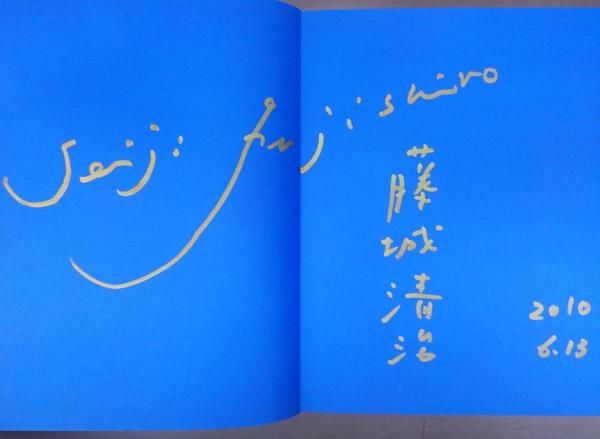 Seiji Fujishiro
藤城清治
2010
6.13